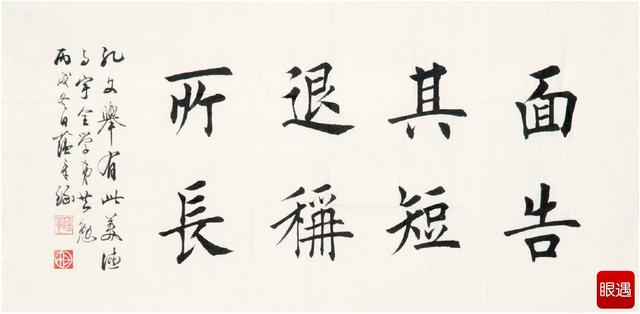 面告
其短
退稱
所長
孔文舉有此美德
与宇全学弟共勉
丙戌冬日
眼遇